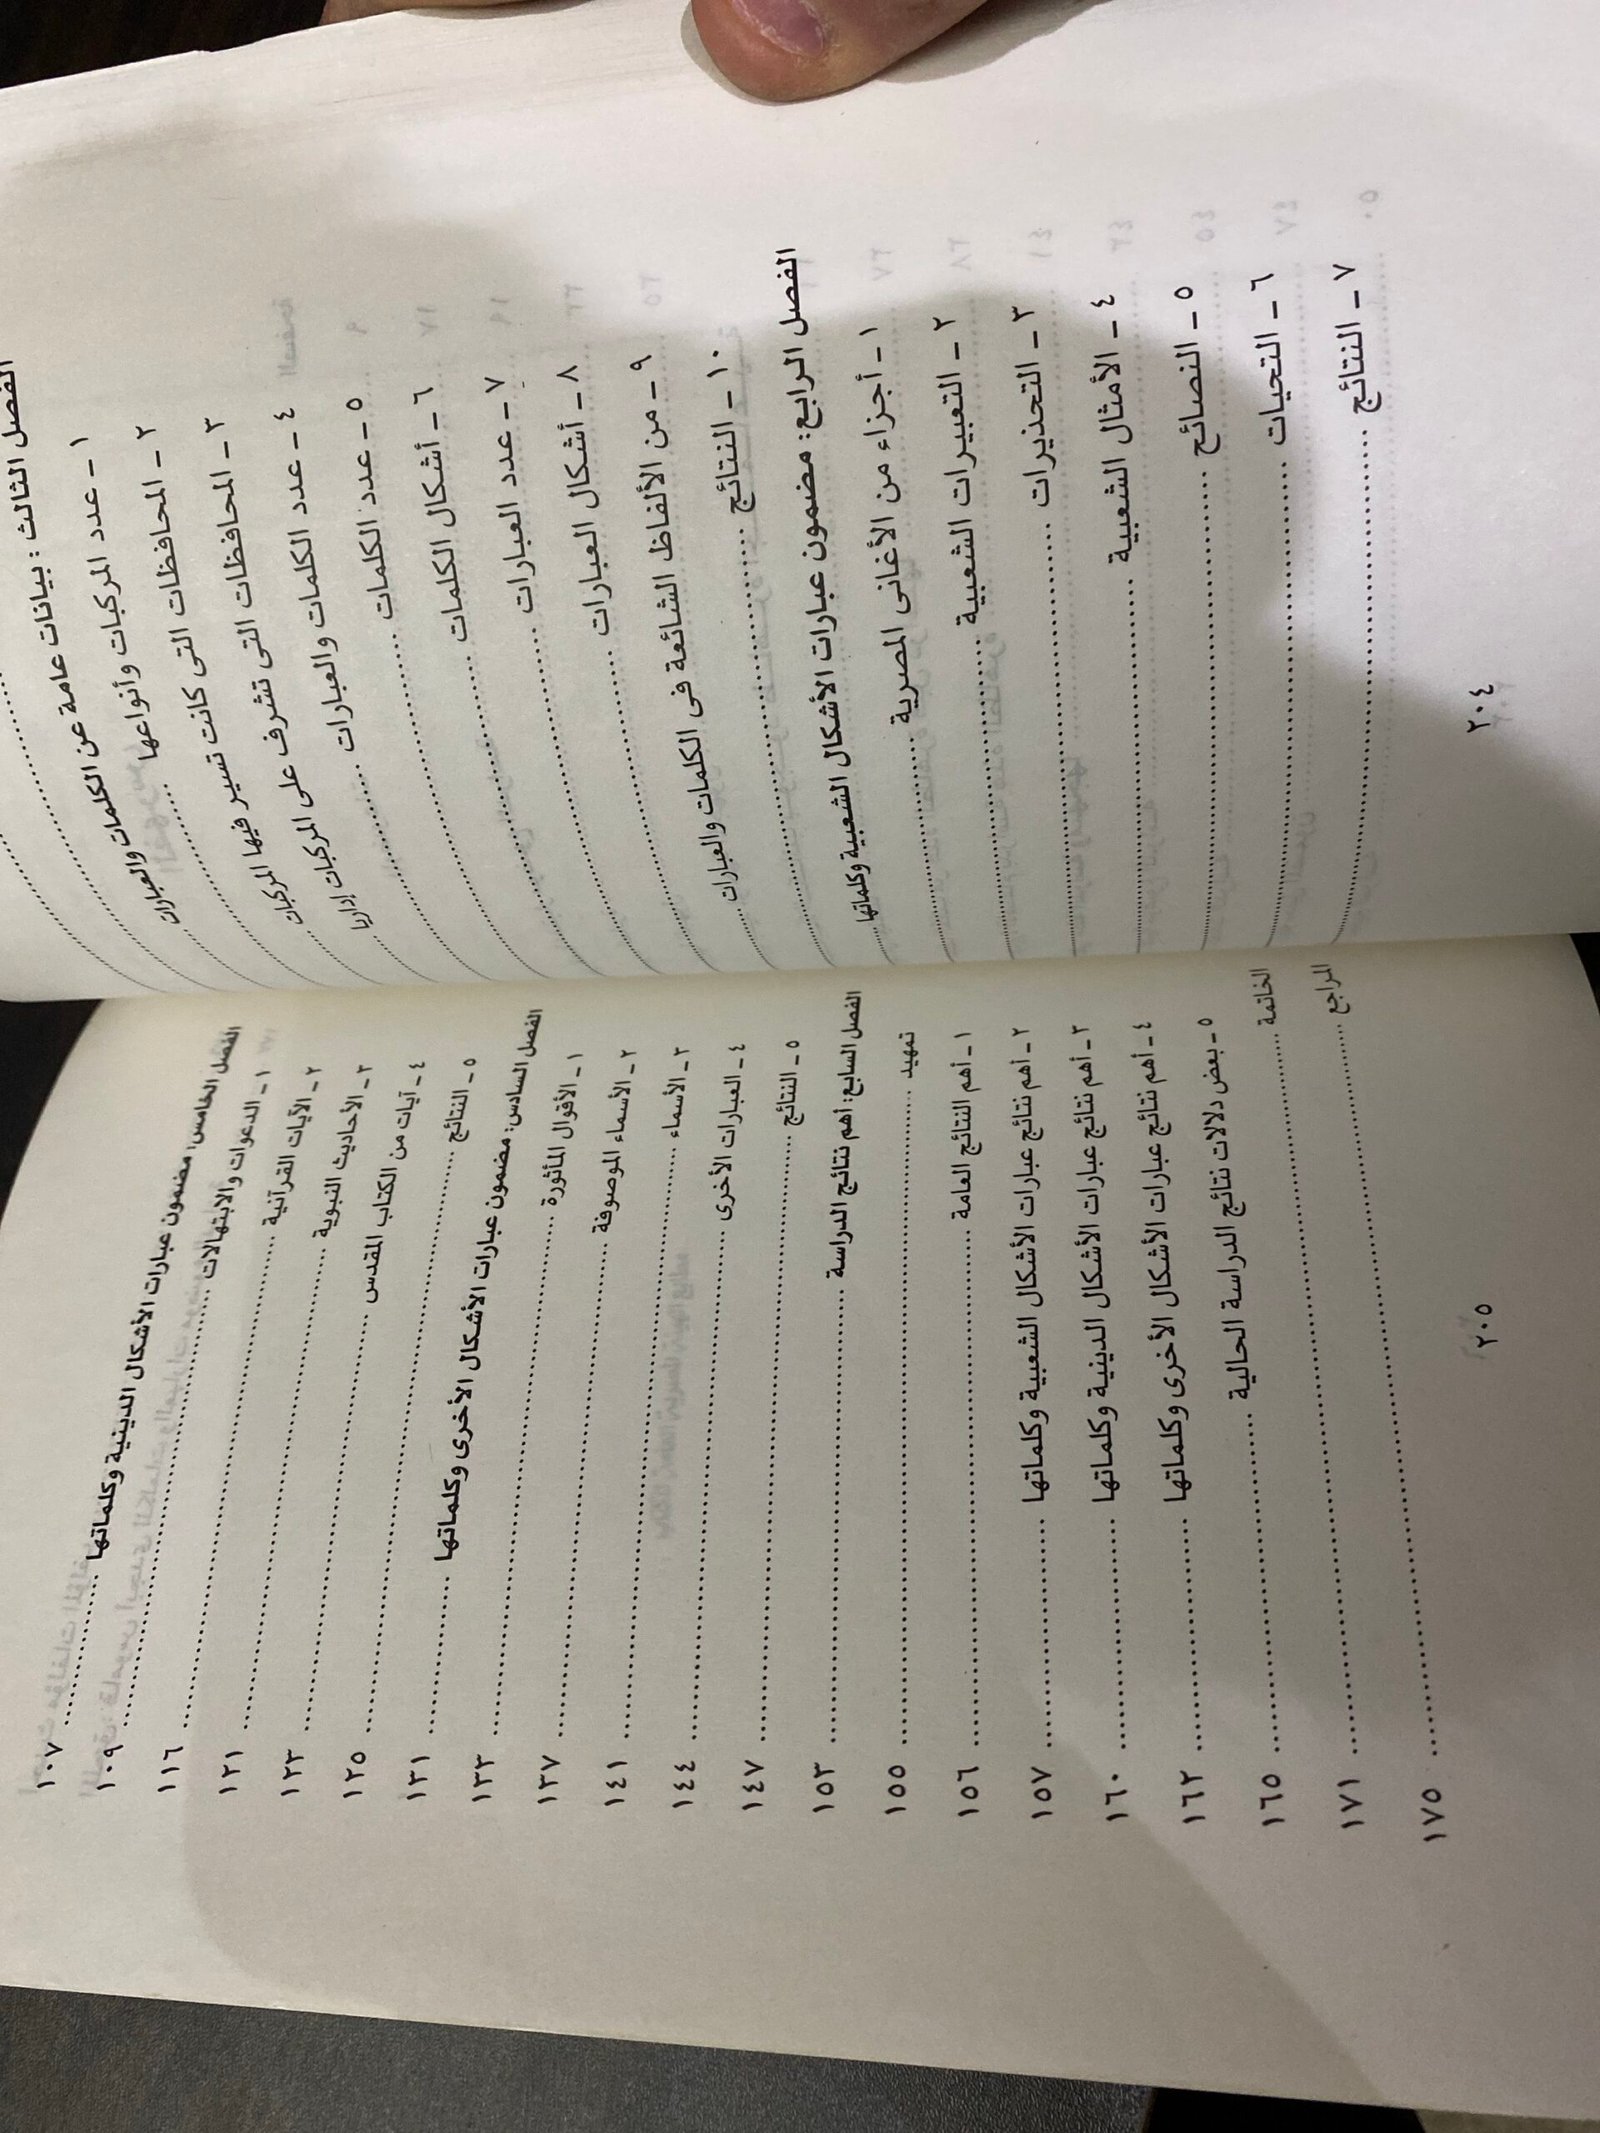 الفصل الثالث: بيانات عامة عن الكلمات والعبارات
١ ـ عدد المركبات وأنواعها
٢ ـ المحافظات التى كانت تسير فيها المركبات
٣ ـ المحافظات التى تشرف على المركبات إداريا
٤ ـ عدد الكلمات والعبارات
٥ ـ عدد الكلمات
٦ ـ أشكال الكلمات
٧ ـ عدد العبارات
٨ ـ أشكال العبارات
٩ ـ من الألفاظ الشائعة فى الكلمات والعبارات
١٠ ـ النتائج
الفصل الرابع: مضمون عبارات الأشكال الشعبية وكلماتها
١ ـ أجزاء من الأغانى المصرية
٢ ـ التعبيرات الشعبية
٣ ـ التحذيرات
٤ ـ الأمثال الشعبية
٥ ـ النصائح
٦ ـ التحيات
٧ ـ النتائج
٢٠٤
الفصل الخامس: مضمون عبارات الأشكال الدينية وكلماتها ١٠٧
١ ـ الدعوات والابتهالات ١٠٩
٢ ـ الآيات القرآنية ١١٦
٣ ـ الأحاديث النبوية ١٢١
٤ ـ آيات من الكتاب المقدس ١٢٣
٥ ـ النتائج ١٢٥
الفصل السادس: مضمون عبارات الأشكال الأخرى وكلماتها ١٣١
١ ـ الأقوال المأثورة ١٣٣
٢ ـ الأسماء الموصوفة ١٣٧
٣ ـ الأسماء ١٤١
٤ ـ العبارات الأخرى ١٤٤
٥ ـ النتائج ١٤٧
الفصل السابع: أهم نتائج الدراسة ١٥٣
تمهيد ١٥٥
١ ـ أهم النتائج العامة ١٥٦
٢ ـ أهم نتائج عبارات الأشكال الشعبية وكلماتها ١٥٧
٣ ـ أهم نتائج عبارات الأشكال الدينية وكلماتها ١٦٠
٤ ـ أهم نتائج عبارات الأشكال الأخرى وكلماتها ١٦٢
٥ ـ بعض دلالات نتائج الدراسة الحالية ١٦٥
الخاتمة ١٧١
المراجع ١٧٥
٢٠٥